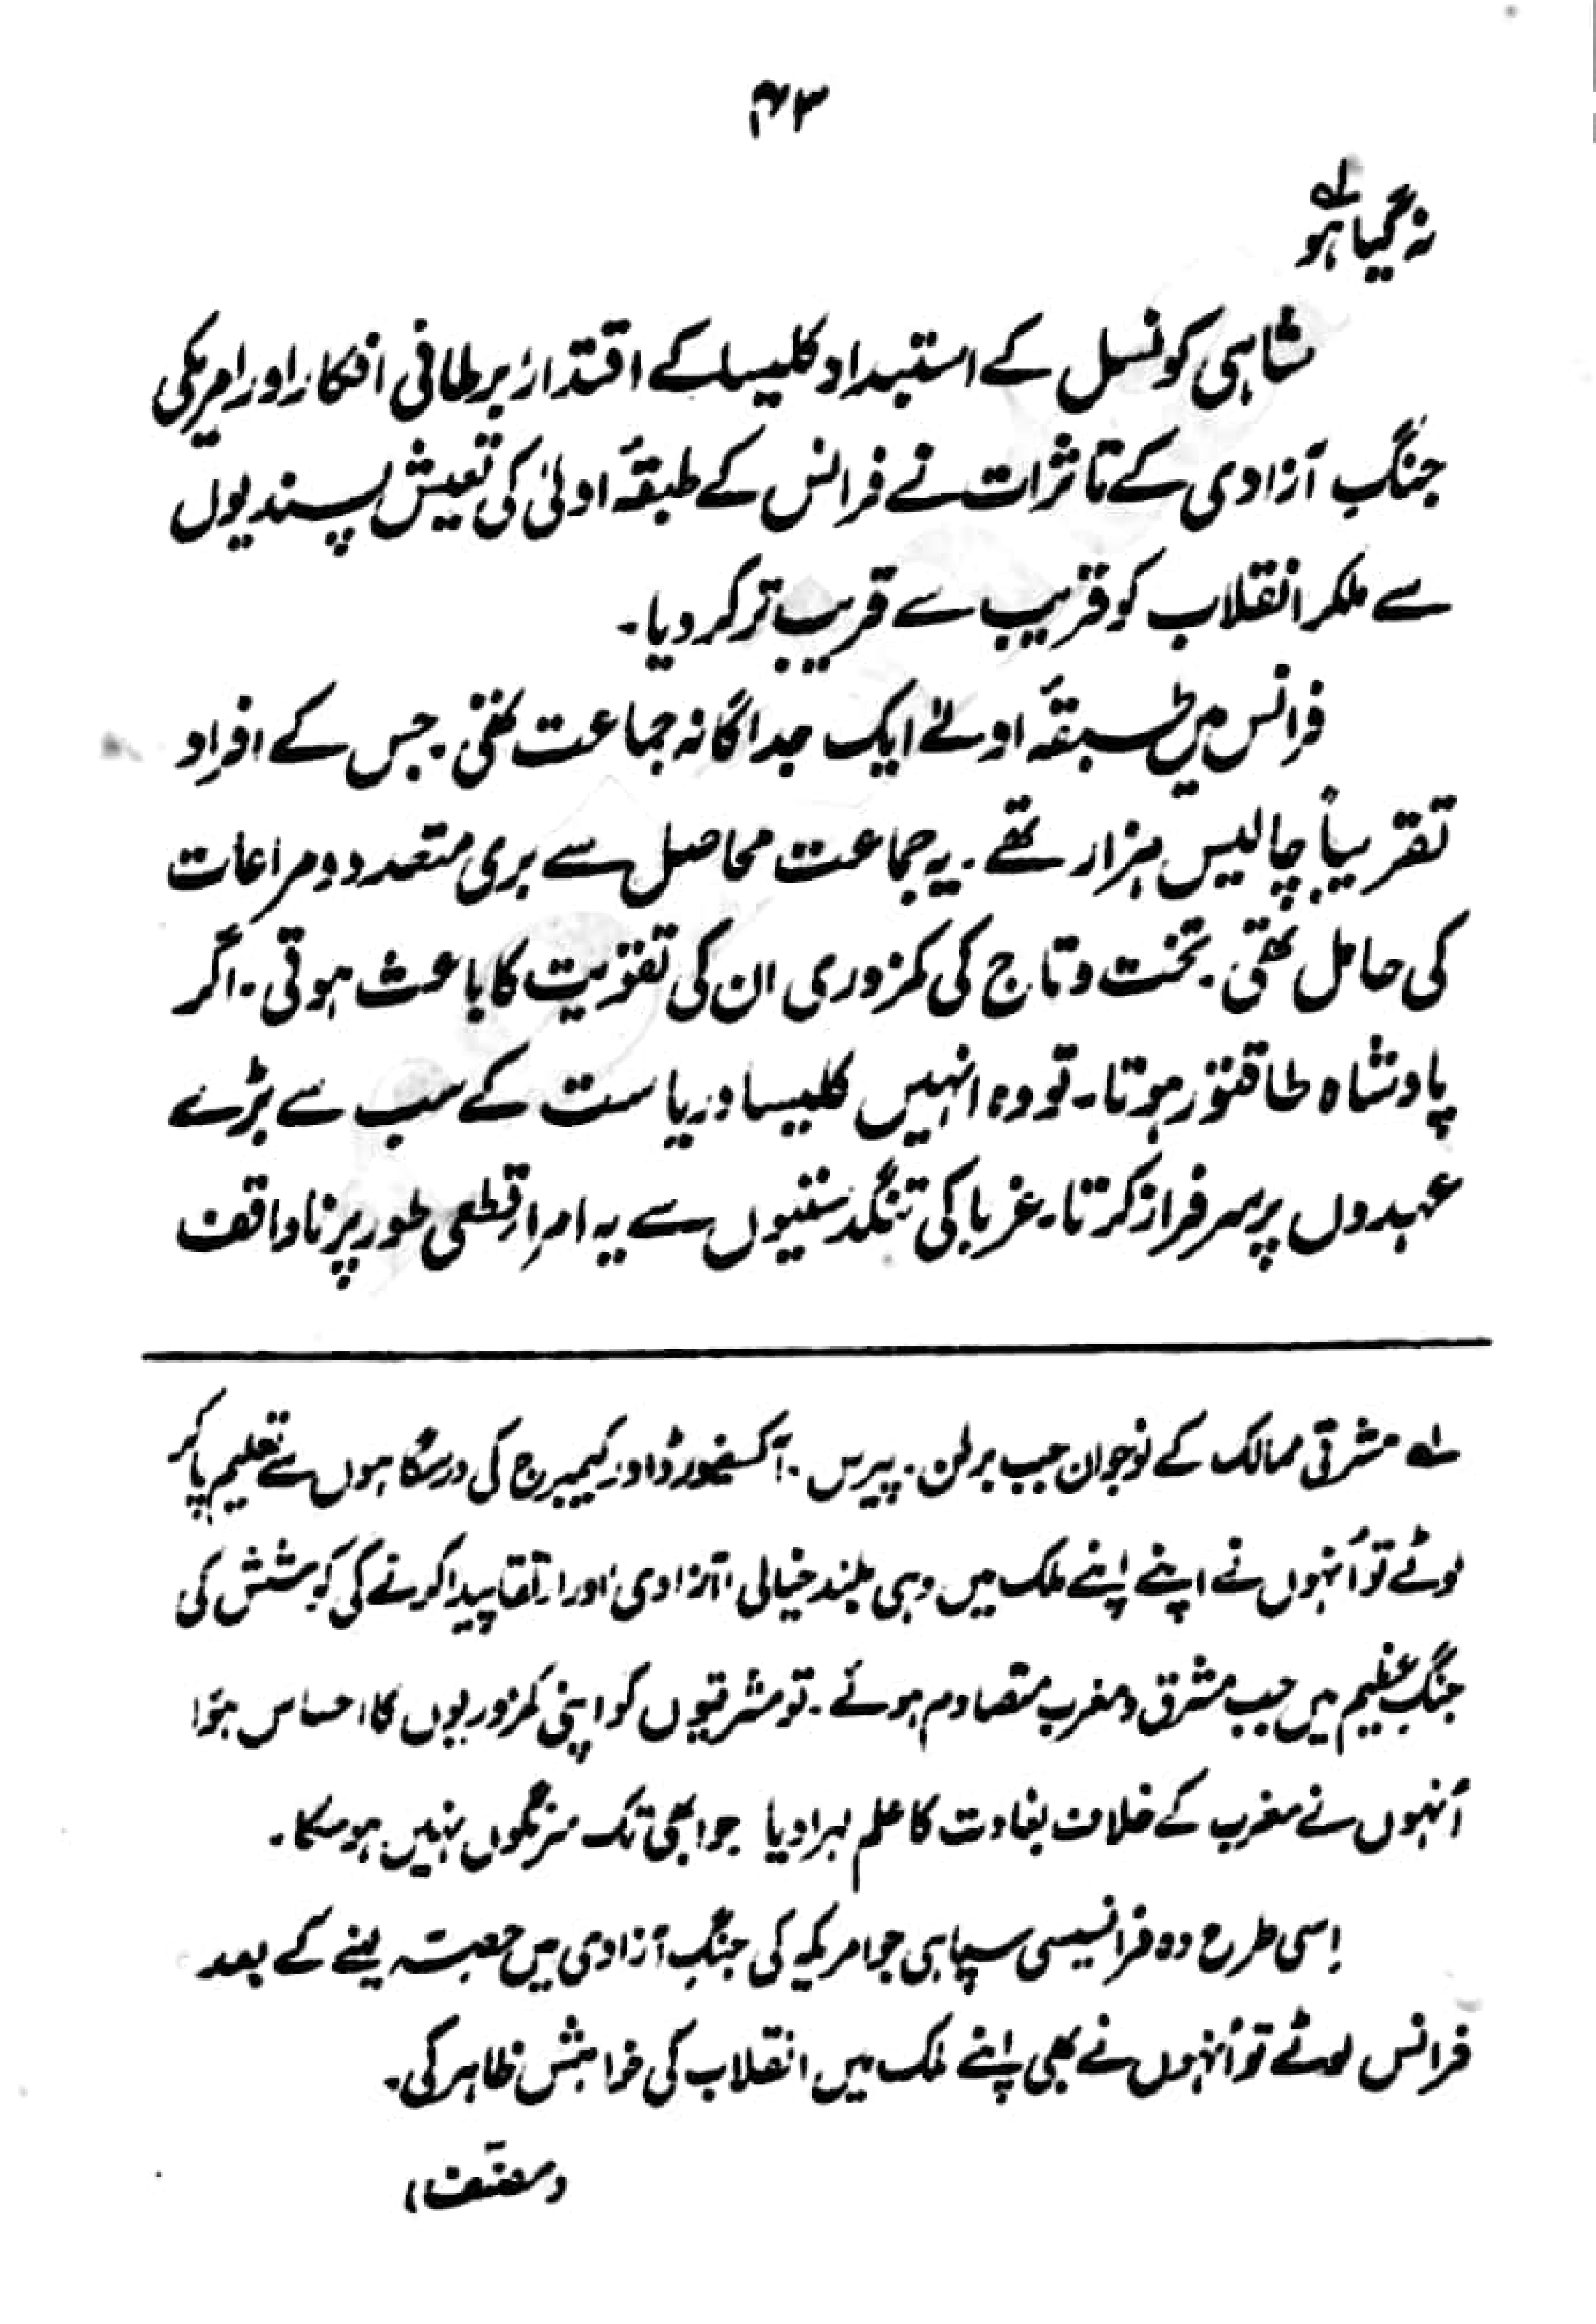 ۴۳
نہ گیا ہو ؎۱
شاہی کونسل کے استبداد کلیسا کے اقتدار، برطانی افکار اور امریکی
جنگِ آزادی کے تاثرات نے فرانس کے طبقۂ اولیٰ کی تعیش پسندیوں
سے ملکر انقلاب کو قریب سے قریب تر کر دیا۔
فرانس میں طبقۂ اولےٰ ایک جداگانہ جماعت تھی۔ جس کے افراد
تقریباً چالیس ہزار تھے۔ یہ جماعت محاصل سے بری متعدد و مراعات
کی حامل تھی۔ تخت و تاج کی کمزوری ان کی تقویت کا باعث ہوتی۔ اگر
پادشاہ طاقتور ہوتا۔ تو وہ انہیں کلیسا و ریاست کے سب سے بڑے
عہدوں پر سرفراز کرتا۔ غربا کی تنگدستیوں سے یہ امرا قطعی طور پر ناواقف
؎۱ مشرقی ممالک کے نوجوان جب برلن۔ پیرس۔ آکسفورڈ اور کیمبرج کی درسگاہوں سے تعلیم پا کر
لوٹے تو اُنہوں نے اپنے اپنے ملک میں وہی بلند خیالی، آزادی اور ارتقا پیدا کرنے کی کوشش کی
جنگِ عظیم میں جب مشرق و مغرب متصادم ہوئے۔ تو مشرقیوں کو اپنی کمزوریوں کا احساس ہؤا
اُنہوں نے مغرب کے خلاف بغاوت کا علم لہرا دیا جو ابھی تک سرنگوں نہیں ہو سکا۔
اِسی طرح وہ فرانسیسی سپاہی جو امریکہ کی جنگِ آزادی میں حصہ لینے کے بعد
فرانس لوٹے تو اُنہوں نے بھی اپنے ملک میں انقلاب کی خواہش ظاہر کی۔
(مصنّف)